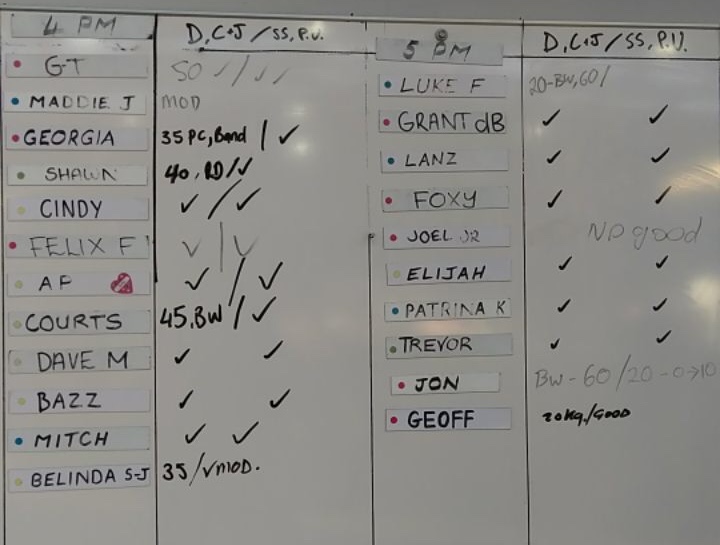 4 PM D, C+J / SS, P.U.
G-T 50 ✓ / ✓ ✓
MADDIE J MOD
GEORGIA 35 PC, Band / ✓
SHAWN 40, RD / ✓
CINDY ✓ / ✓
FELIX F ✓ / ✓
A P ✓ / ✓
COURTS 45, BW / ✓
DAVE M ✓ ✓
BAZZ ✓ ✓
MITCH ✓ ✓
BELINDA S-J 35 / ✓ MOD.
5 PM D, C+J / SS, P.U.
LUKE F 20-BW, 60 /
GRANT dB ✓ ✓
LANZ ✓ ✓
FOXY ✓ ✓
JOEL JR No good
ELIJAH ✓ ✓
PATRINA K ✓ ✓
TREVOR ✓ ✓
JON BW - 60 / 20 - 0→10
GEOFF 20kg. / GOOD